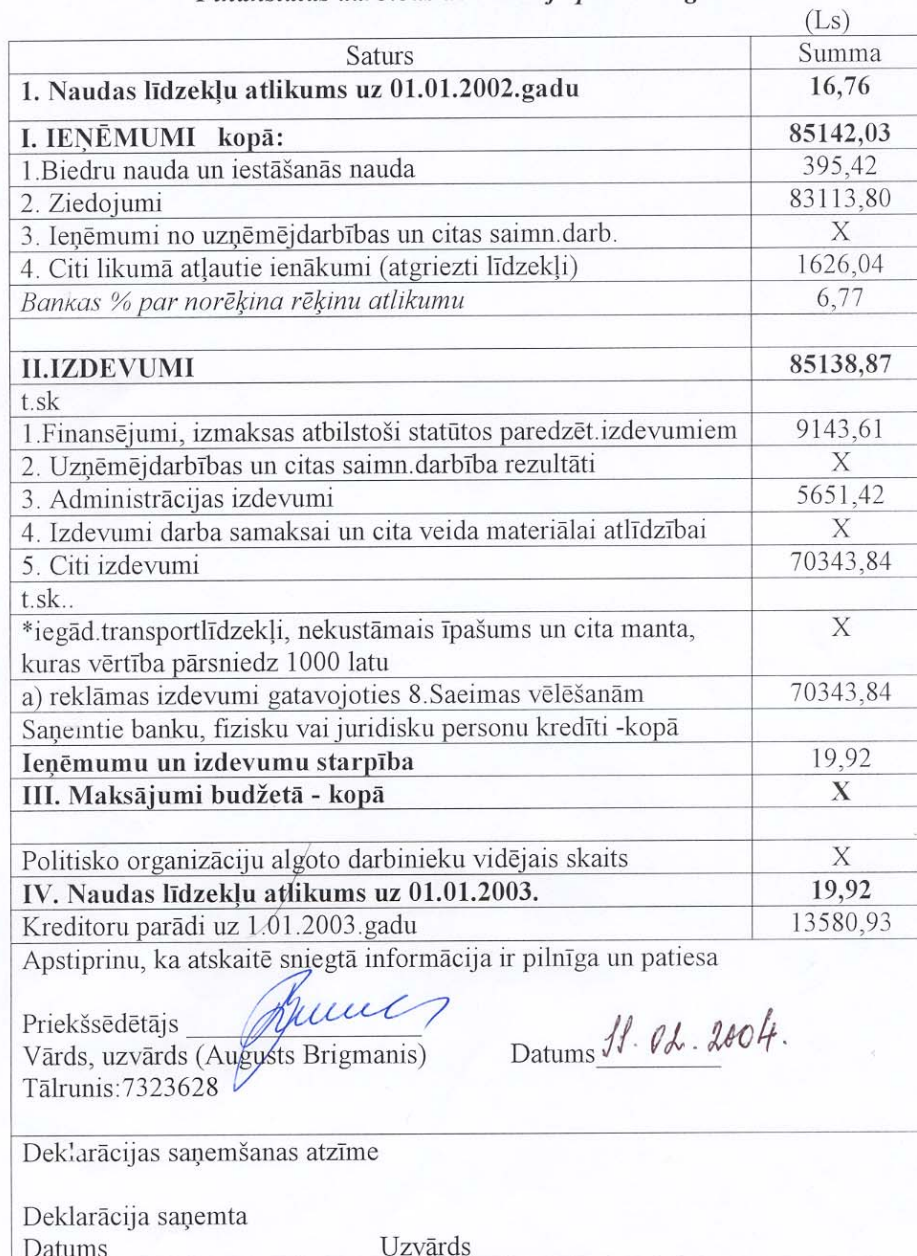 (Ls)
Saturs Summa
1. Naudas līdzekļu atlikums uz 01.01.2002.gadu 16,76
I. IEŅĒMUMI kopā: 85142,03
1.Biedru nauda un iestāšanās nauda 395,42
2. Ziedojumi 83113,80
3. Ieņēmumi no uzņēmējdarbības un citas saimn.darb. X
4. Citi likumā atļautie ienākumi (atgriezti līdzekļi) 1626,04
Bankas % par norēķina rēķinu atlikumu 6,77
II.IZDEVUMI 85138,87
t.sk
1.Finansējumi, izmaksas atbilstoši statūtos paredzēt.izdevumiem 9143,61
2. Uzņēmējdarbības un citas saimn.darbība rezultāti X
3. Administrācijas izdevumi 5651,42
4. Izdevumi darba samaksai un cita veida materiālai atlīdzībai X
5. Citi izdevumi 70343,84
t.sk..
*iegād.transportlīdzekļi, nekustāmais īpašums un cita manta, X
kuras vērtība pārsniedz 1000 latu
a) reklāmas izdevumi gatavojoties 8.Saeimas vēlēšanām 70343,84
Saņemtie banku, fizisku vai juridisku personu kredīti -kopā
Ieņēmumu un izdevumu starpība 19,92
III. Maksājumi budžetā - kopā X
Politisko organizāciju algoto darbinieku vidējais skaits X
IV. Naudas līdzekļu atlikums uz 01.01.2003. 19,92
Kreditoru parādi uz 1.01.2003.gadu 13580,93
Apstiprinu, ka atskaitē sniegtā informācija ir pilnīga un patiesa
Priekšsēdētājs
Vārds, uzvārds (Augusts Brigmanis) Datums 11.02.2004.
Tālrunis:7323628
Deklarācijas saņemšanas atzīme
Deklarācija saņemta
Datums Uzvārds